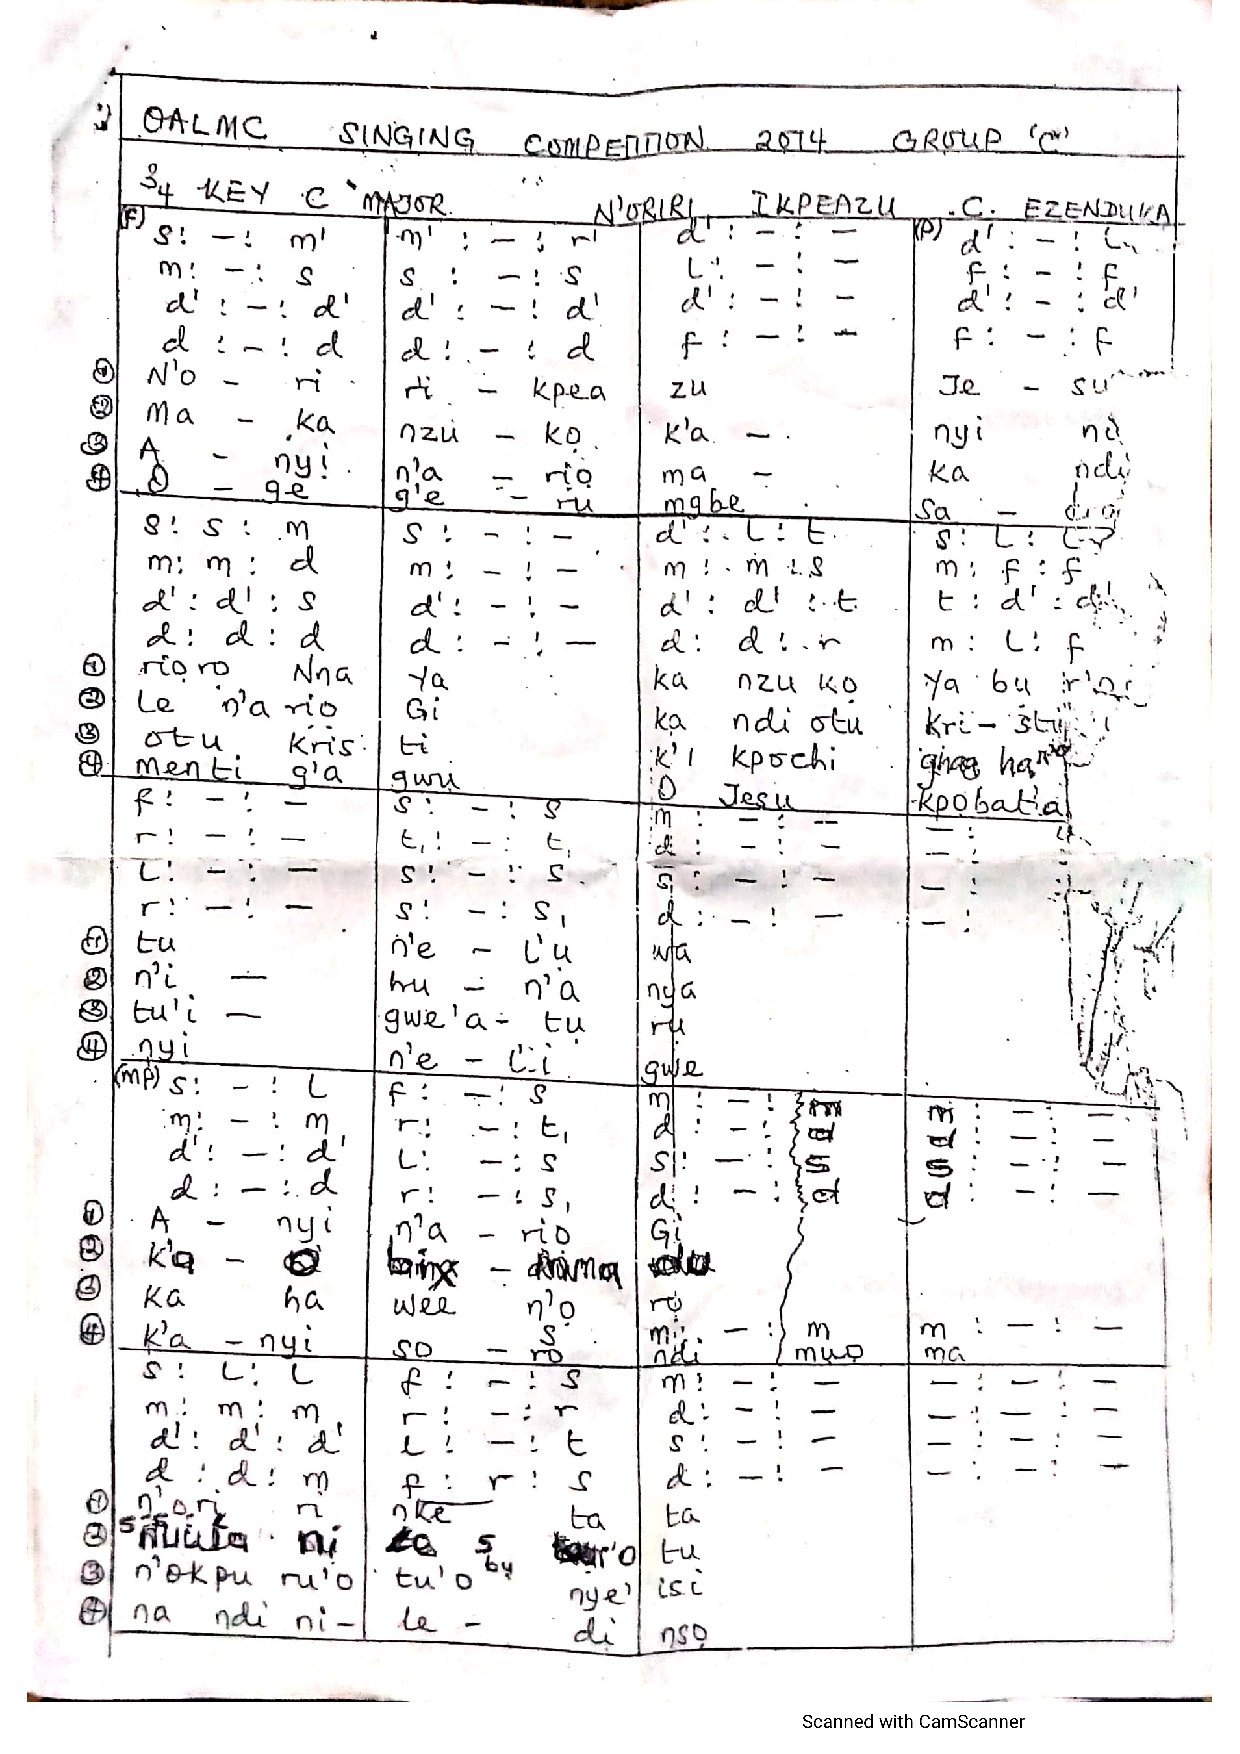 OALMC SINGING COMPETITION 2014 GROUP 'C'
3/4 KEY C MAJOR N'ORIRI IKPEAZU .C. EZENDUKA
(F) s: -: m' m' : - : r' d' : - : - (P) d' : - : L
m: -: s s : - : s L: - : - f : - : f
d' : - : d' d' : - : d' d' : - : - d' : - : d'
d : - : d d : - : d f : - : - f : - : f
① N'o - ri ri - kpea zu Je - su
② Ma - ka nzu - kọ k'a - nyi
③ A - nyi n'a - rịọ ma - ka ndi
④ O - ge g'e - ru mgbe sa -
s: s : m s : - : - d' : L : t s: L:
m: m : d m : - : - m : m : s m: f : f
d' : d' : s d' : - : - d' : d' : t t : d' : d'
d : d : d d : - : - d : d : r m : L : f
① rịọrọ Nna Ya ka nzu kọ Ya bụ
② Le n'a rio Gi ka ndi otu kri-
③ otu Kris ti k'I kpochi
④ menti g'a gwu O Jesu kpobatia
f: - : - s: - : s m : - : - - : - :
r: - : - t,: - : t, d : - : - - : - :
L: - : - s: - : s s : - : - - : - :
r: - : - s: - : s, d : - : - - : - :
① tu n'e - L'u wa
② n'i - hu - n'a nya
③ tu'i - gwe'a - tu ru
④ nyi n'e - L'i gwe
(MP) s: - : L f: - : s m : - : m m : - : -
m: - : m r: - : t, d : - : d d : - : -
d' : - : d' L: - : s s : - : s s : - : -
d : - : d r: - : s, d : - : d d : - : -
① A - nyi n'a - rio Gi
② k'a -
③ Ka ha wee n'o rọ
④ k'a - nyi so - ro ndi muọ ma
s : L : L f : - : s m : - : - - : - : -
m : m : m r : - : r d : - : - - : - : -
d' : d' : d' L : - : t s : - : - - : - : -
d : d : m f : r : s d : - : - - : - : -
① n'ori ri nke ta ta
② ni tu
③ n'okpu ru'o tu'o nye' isi
④ na ndi ni- le - di nsọ
Scanned with CamScanner